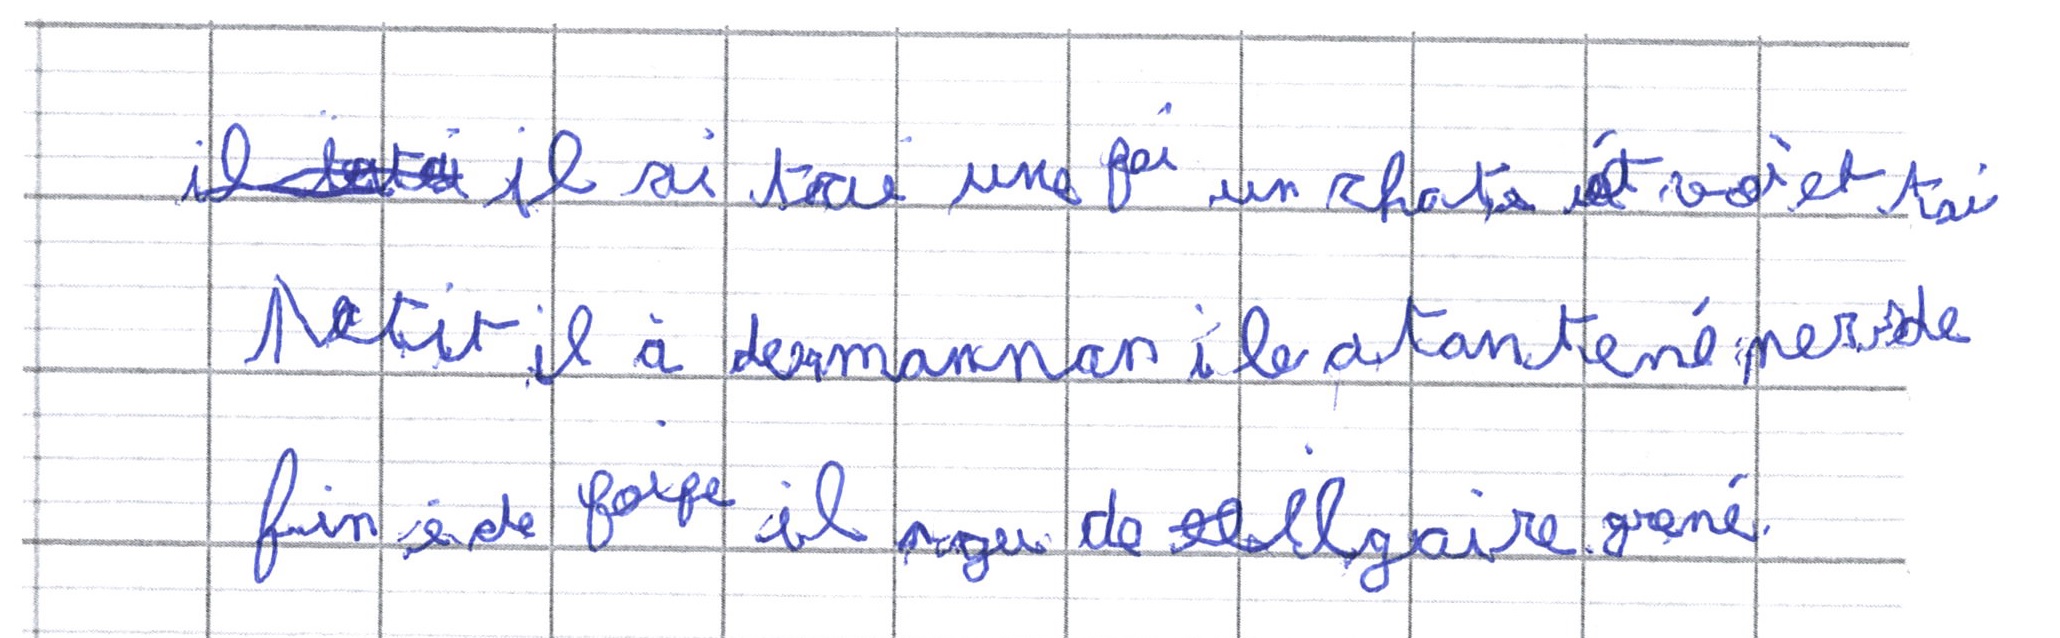 il il si trai une foi un chate ét voi et tai
Petit il à dermannan i le a tan tené per de
fin é de forfe il de gaire grené.